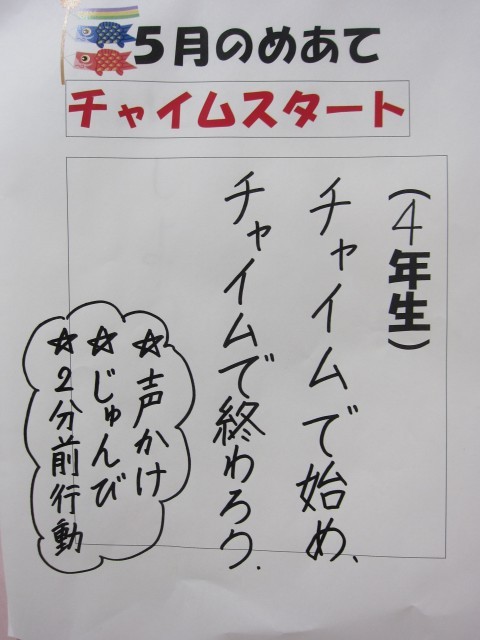 5月のめあて
チャイムスタート
(4年生)
チャイムで始め、
チャイムで終わろう.
☆声かけ
☆じゅんび
☆2分前行動